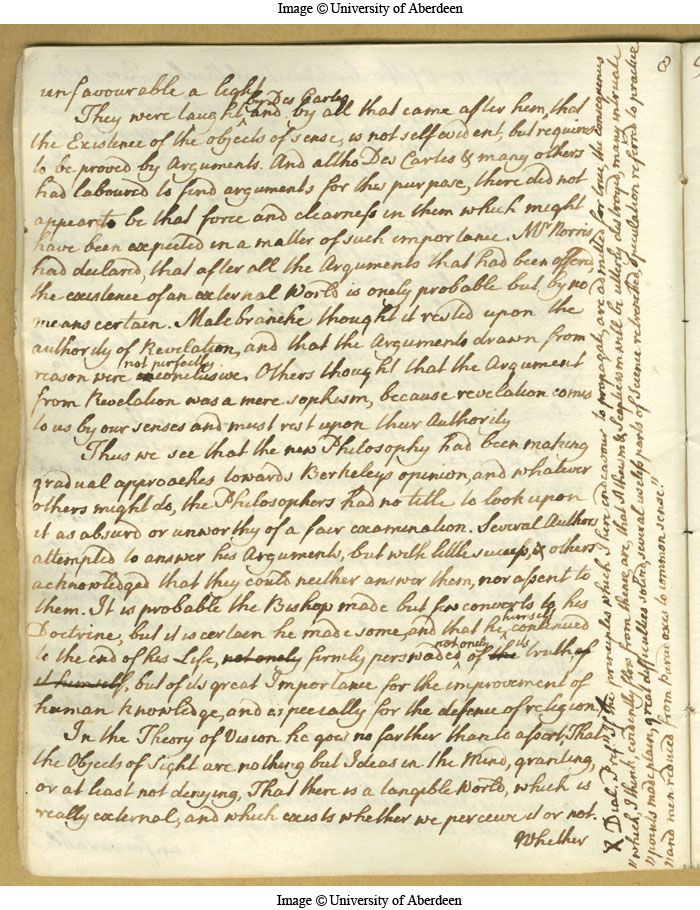 Image © University of Aberdeen
8
unfavourable a light
They were taught by Des Cartes and by all that came after him, that
the Existence of the objects of sense, is not self evident, but requires
to be proved by Arguments. And altho Des Cartes & many others
had laboured to find arguments for this purpose, there did not
appear to be that force and clearness in them which might
have been expected in a matter of such importance. Mr Norris
had declared, that after all the Arguments that had been offered
the existence of an external World is onely probable but by no
means certain. Malebranche thought it rested upon the
authority of Revelation, and that the Arguments drawn from
reason were not perfectly conclusive. Others thought that the Argument
from Revelation was a mere sophism, because revelation comes
to us by our senses and must rest upon their Authority
Thus we see that the new Philosophy had been making
gradual approaches towards Berkeleys opinion, and whatever
others might do, the Philosophers had no title to look upon
it as absurd or unworthy of a fair examination. Several Authors
attempted to answer his Arguments, but with little success, & others
acknowledged that they could neither answer them, nor assent to
them. It is probable the Bishop made but few converts to his
Doctrine, but it is certain he made some, and that he himself continued
to the end of his Life, not onely firmly perswaded not onely of the its truth of
it himself, but of its great Importance for the improvement of
human knowledge, and especially for the defence of religion
In the Theory of Vision he goes no farther than to assert, That
the Objects of Sight are nothing but Ideas in the Mind, granting,
or at least not denying, That there is a tangible World, which is
really external, and which exists whether we perceive it or not.
Whether
X Dial. Pref. "If the principles which I here endeavour to propagate, are admitted for true; the consequences
"which, I think, evidently flow from thence are, that Atheism & Scepticism will be utterly destroyed, many intricate
"points made plain, great difficulties solved, several useless parts of Science retrenched, speculation referred to practice
"and men reduced from paradoxes to common sense."
Image © University of Aberdeen